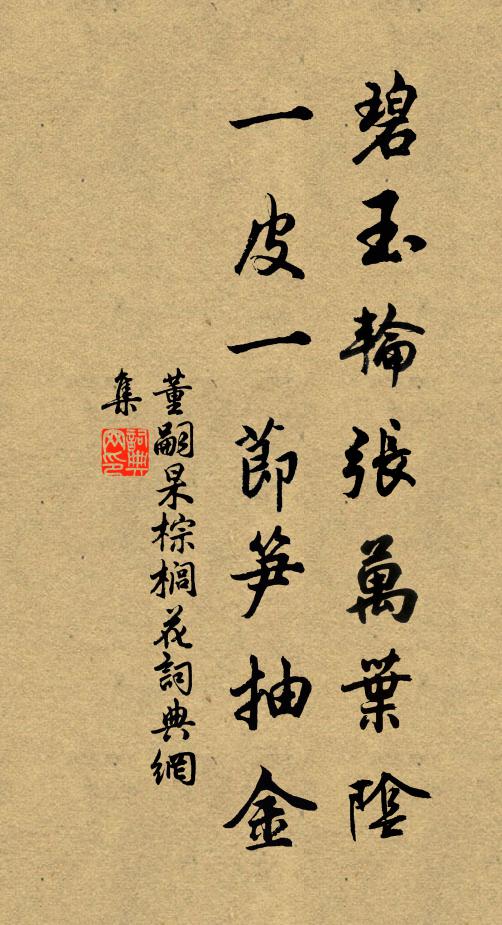 碧玉輪張萬葉陰
一皮一節笋抽金
董嗣杲棕榈花詞典網
集
詞典網印